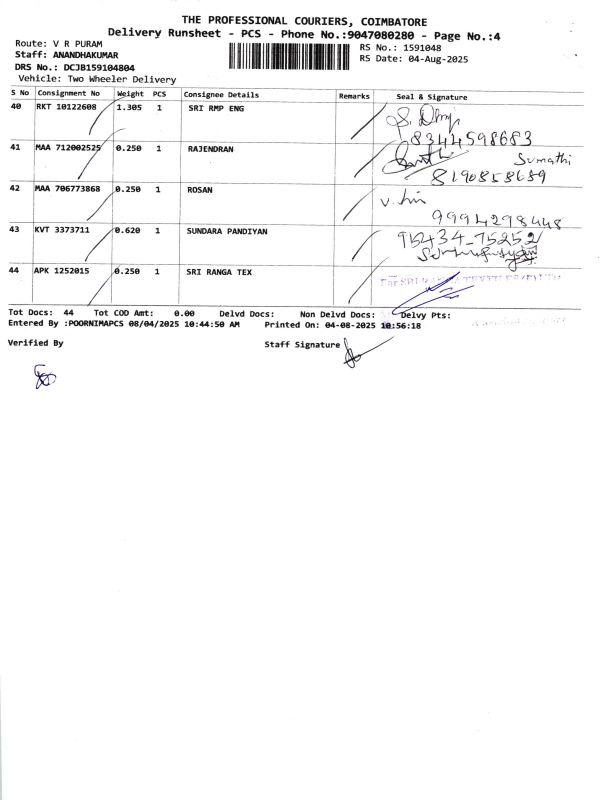 THE PROFESSIONAL COURIERS, COIMBATORE
Delivery Runsheet - PCS - Phone No.:9047080280 - Page No.:4
Route: V R PURAM
RS No.: 1591048
Staff: ANANDHAKUMAR
RS Date: 04-Aug-2025
DRS No.: DCJB159104804
Vehicle: Two Wheeler Delivery
S No Consignment No Weight PCS Consignee Details Remarks Seal & Signature
40 RKT 10122608 1.305 1 SRI RMP ENG
8344598683
41 MAA 712002525 0.250 1 RAJENDRAN
Sumathi
8190858689
42 MAA 706773868 0.250 1 ROSAN
9994298448
43 KVT 3373711 0.620 1 SUNDARA PANDIYAN
44 APK 1252015 0.250 1 SRI RANGA TEX
Tot Docs: 44 Tot COD Amt: 0.00 Delvd Docs: Non Delvd Docs: Delvy Pts:
Entered By :POORNIMAPCS 08/04/2025 10:44:50 AM Printed On: 04-08-2025 10:56:18
Verified By Staff Signature